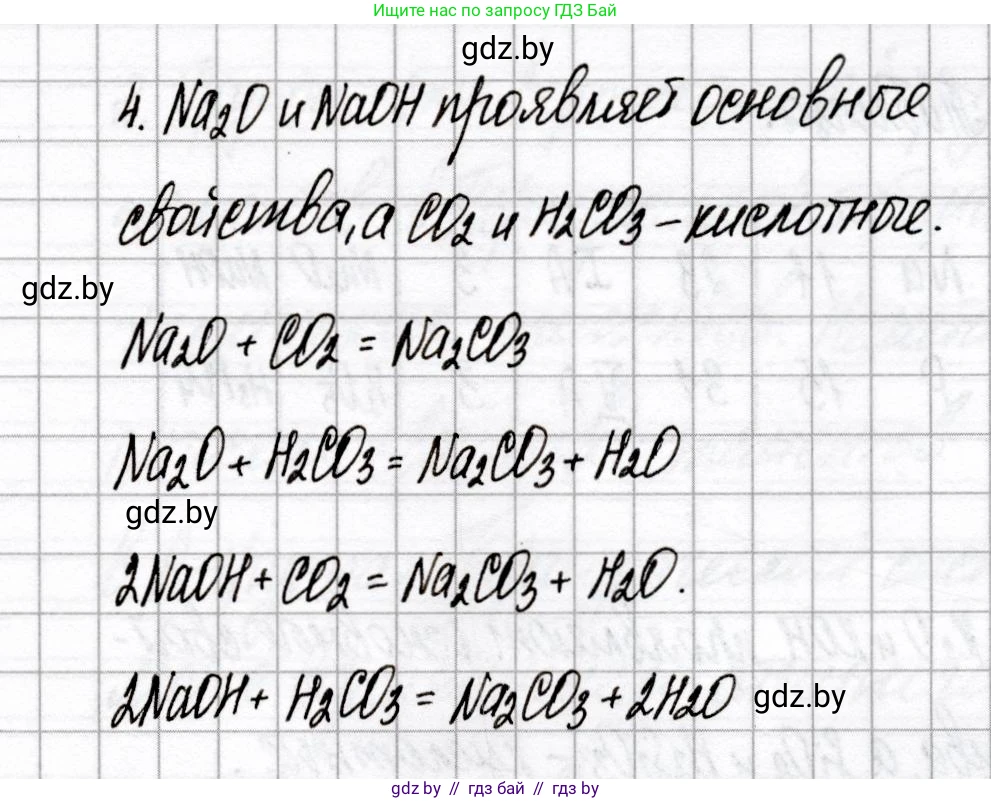 Ищите нас по запросу ГДЗ Бай
gdz.by
4. Na₂O и NaOH проявляет основные
свойства, а CO₂ и H₂CO₃ – кислотные.
gdz.by
Na₂O + CO₂ = Na₂CO₃
Na₂O + H₂CO₃ = Na₂CO₃ + H₂O
gdz.by
2NaOH + CO₂ = Na₂CO₃ + H₂O.
2NaOH + H₂CO₃ = Na₂CO₃ + 2H₂O gdz.by
gdz.by // гдз бай // gdz.by